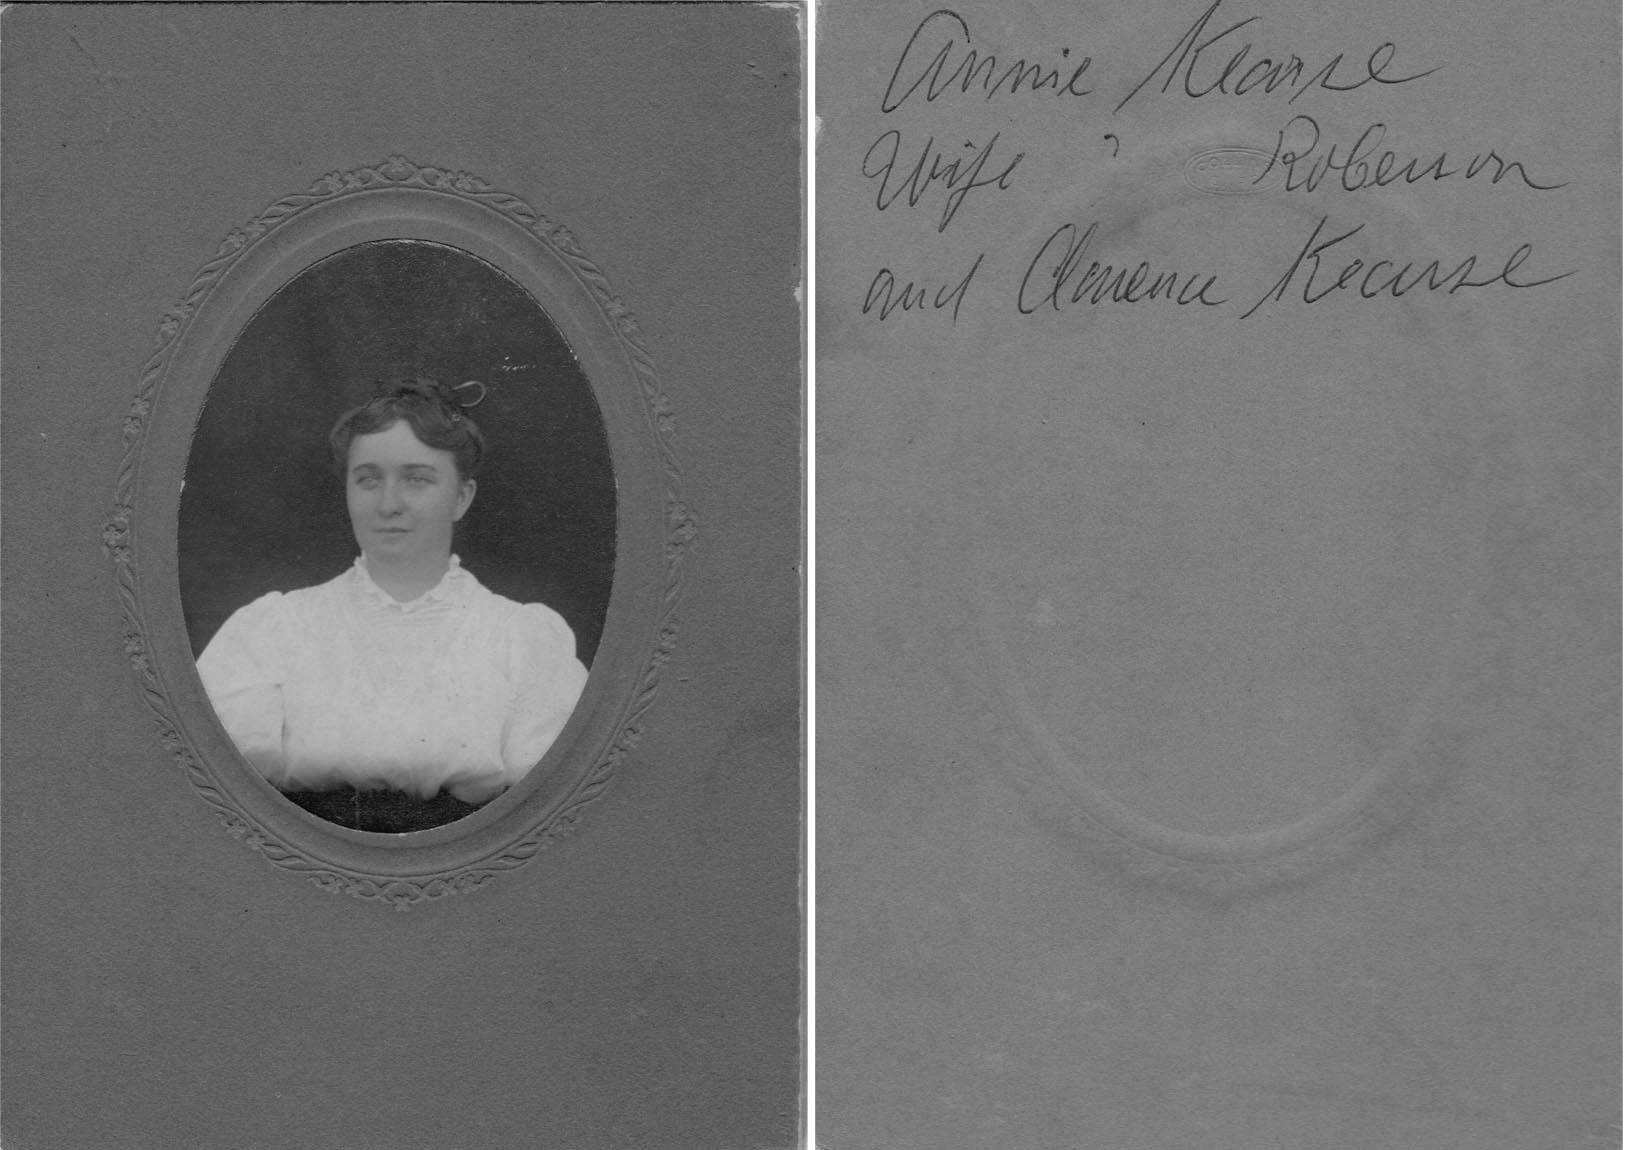 Annie Kearse
Wife ? Roberson
and Clarence Kearse